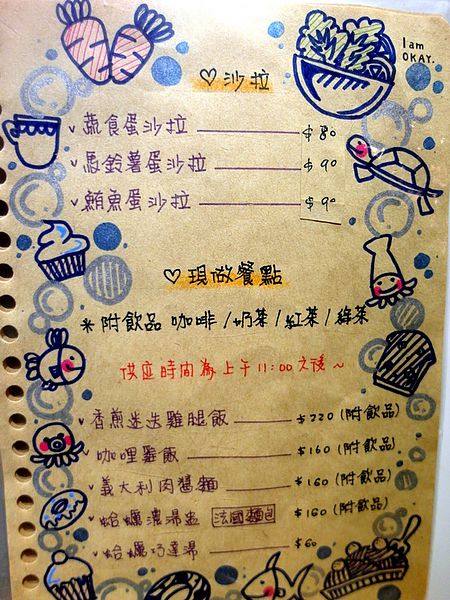 I am
OKAY.
♡沙拉
蔬食蛋沙拉 $80
馬鈴薯蛋沙拉 $90
鮪魚蛋沙拉 $90
♡現做餐點
*附飲品 咖啡/奶茶/紅茶/綠茶
供應時間為上午11:00之後~
香煎迷迭雞腿飯 $220(附飲品)
咖哩雞飯 $160(附飲品)
義大利肉醬麵 $160(附飲品)
蛤蠣濃湯盅 法國麵包 $160(附飲品)
蛤蠣巧達湯 $60